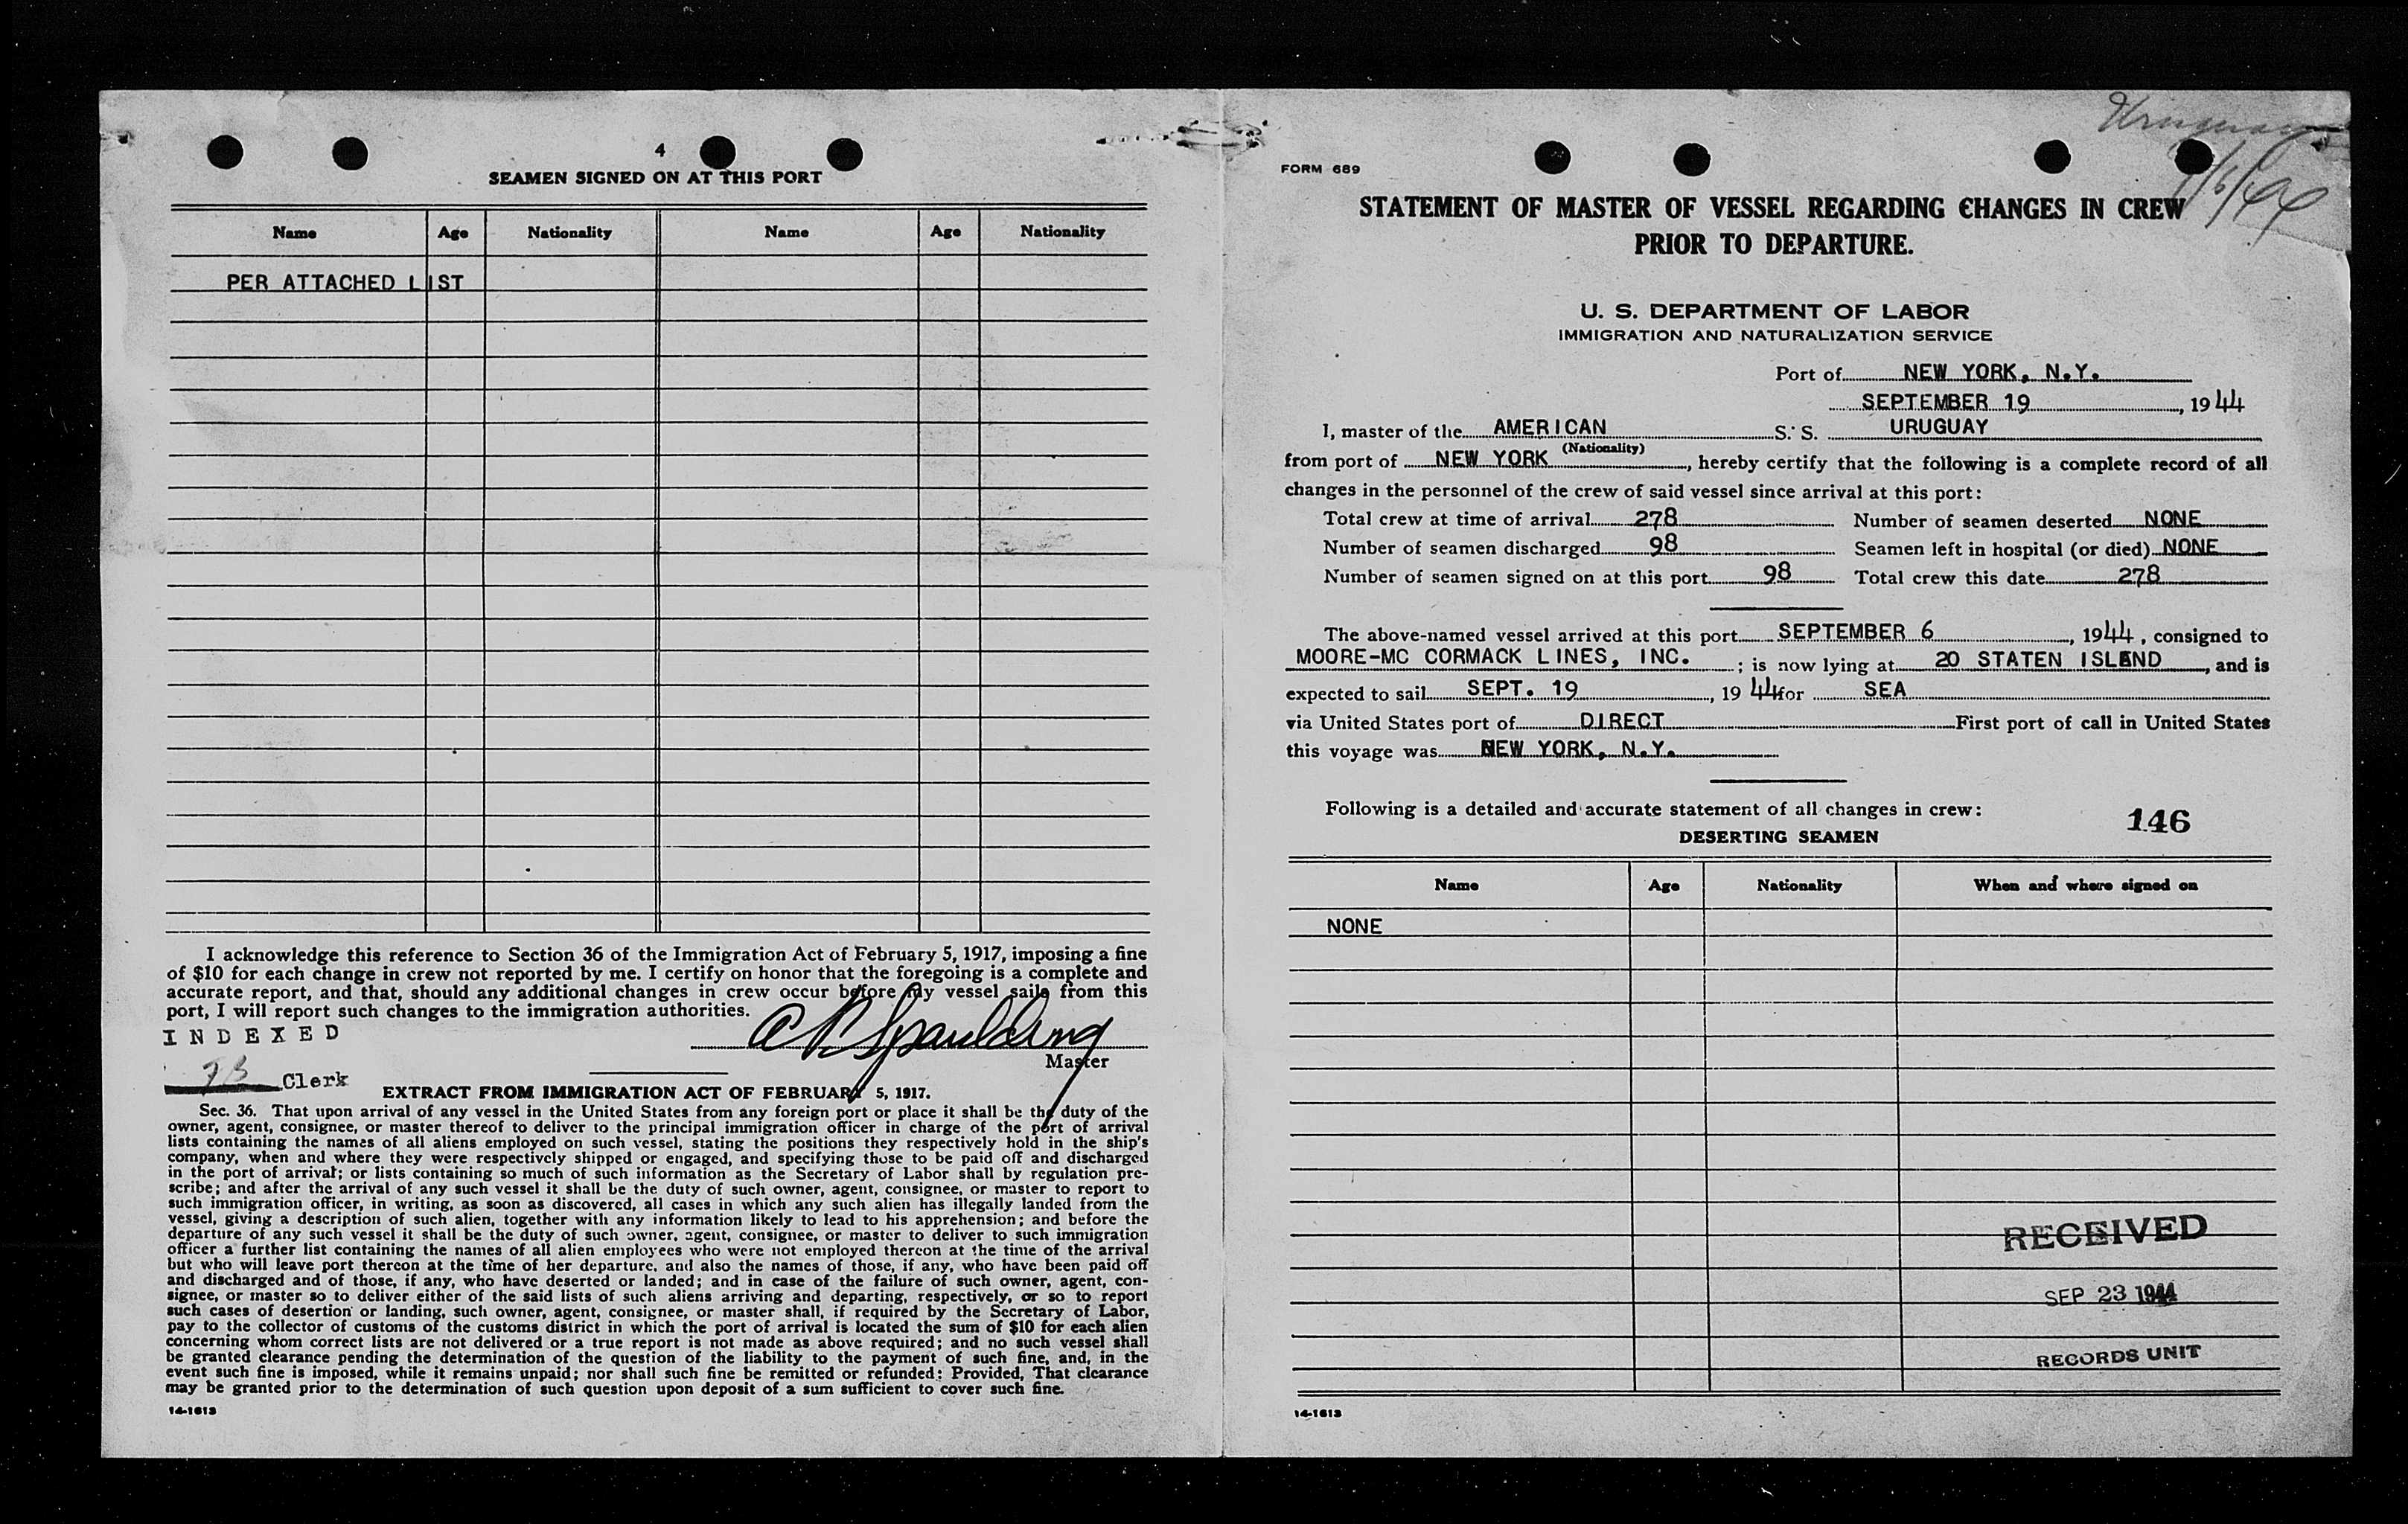 4
SEAMEN SIGNED ON AT THIS PORT
Name Age Nationality Name Age Nationality
PER ATTACHED LIST
I acknowledge this reference to Section 36 of the Immigration Act of February 5, 1917, imposing a fine
of $10 for each change in crew not reported by me. I certify on honor that the foregoing is a complete and
accurate report, and that, should any additional changes in crew occur before my vessel sails from this
port, I will report such changes to the immigration authorities.
INDEXED
Spaulding
Master
Clerk
EXTRACT FROM IMMIGRATION ACT OF FEBRUARY 5, 1917.
Sec. 36. That upon arrival of any vessel in the United States from any foreign port or place it shall be the duty of the
owner, agent, consignee, or master thereof to deliver to the principal immigration officer in charge of the port of arrival
lists containing the names of all aliens employed on such vessel, stating the positions they respectively hold in the ship's
company, when and where they were respectively shipped or engaged, and specifying those to be paid off and discharged
in the port of arrival; or lists containing so much of such information as the Secretary of Labor shall by regulation pre-
scribe; and after the arrival of any such vessel it shall be the duty of such owner, agent, consignee, or master to report to
such immigration officer, in writing, as soon as discovered, all cases in which any such alien has illegally landed from the
vessel, giving a description of such alien, together with any information likely to lead to his apprehension; and before the
departure of any such vessel it shall be the duty of such owner, agent, consignee, or master to deliver to such immigration
officer a further list containing the names of all alien employees who were not employed thereon at the time of the arrival
but who will leave port thereon at the time of her departure, and also the names of those, if any, who have been paid off
and discharged and of those, if any, who have deserted or landed; and in case of the failure of such owner, agent, con-
signee, or master so to deliver either of the said lists of such aliens arriving and departing, respectively, or so to report
such cases of desertion or landing, such owner, agent, consignee, or master shall, if required by the Secretary of Labor,
pay to the collector of customs of the customs district in which the port of arrival is located the sum of $10 for each alien
concerning whom correct lists are not delivered or a true report is not made as above required; and no such vessel shall
be granted clearance pending the determination of the question of the liability to the payment of such fine, and, in the
event such fine is imposed, while it remains unpaid; nor shall such fine be remitted or refunded: Provided, That clearance
may be granted prior to the determination of such question upon deposit of a sum sufficient to cover such fine.
14-1613
Uruguay
FORM 689
STATEMENT OF MASTER OF VESSEL REGARDING CHANGES IN CREW
PRIOR TO DEPARTURE.
U. S. DEPARTMENT OF LABOR
IMMIGRATION AND NATURALIZATION SERVICE
Port of NEW YORK, N.Y.
SEPTEMBER 19, 1944
I, master of the AMERICAN S. S. URUGUAY
(Nationality)
from port of NEW YORK, hereby certify that the following is a complete record of all
changes in the personnel of the crew of said vessel since arrival at this port:
Total crew at time of arrival 278 Number of seamen deserted NONE
Number of seamen discharged 98 Seamen left in hospital (or died) NONE
Number of seamen signed on at this port 98 Total crew this date 278
The above-named vessel arrived at this port SEPTEMBER 6, 1944, consigned to
MOORE-MC CORMACK LINES, INC.; is now lying at 20 STATEN ISLAND, and is
expected to sail SEPT. 19, 1944 for SEA
via United States port of DIRECT First port of call in United States
this voyage was NEW YORK, N.Y.
Following is a detailed and accurate statement of all changes in crew:
146
DESERTING SEAMEN
Name Age Nationality When and where signed on
NONE
RECEIVED
SEP 23 1944
RECORDS UNIT
14-1613